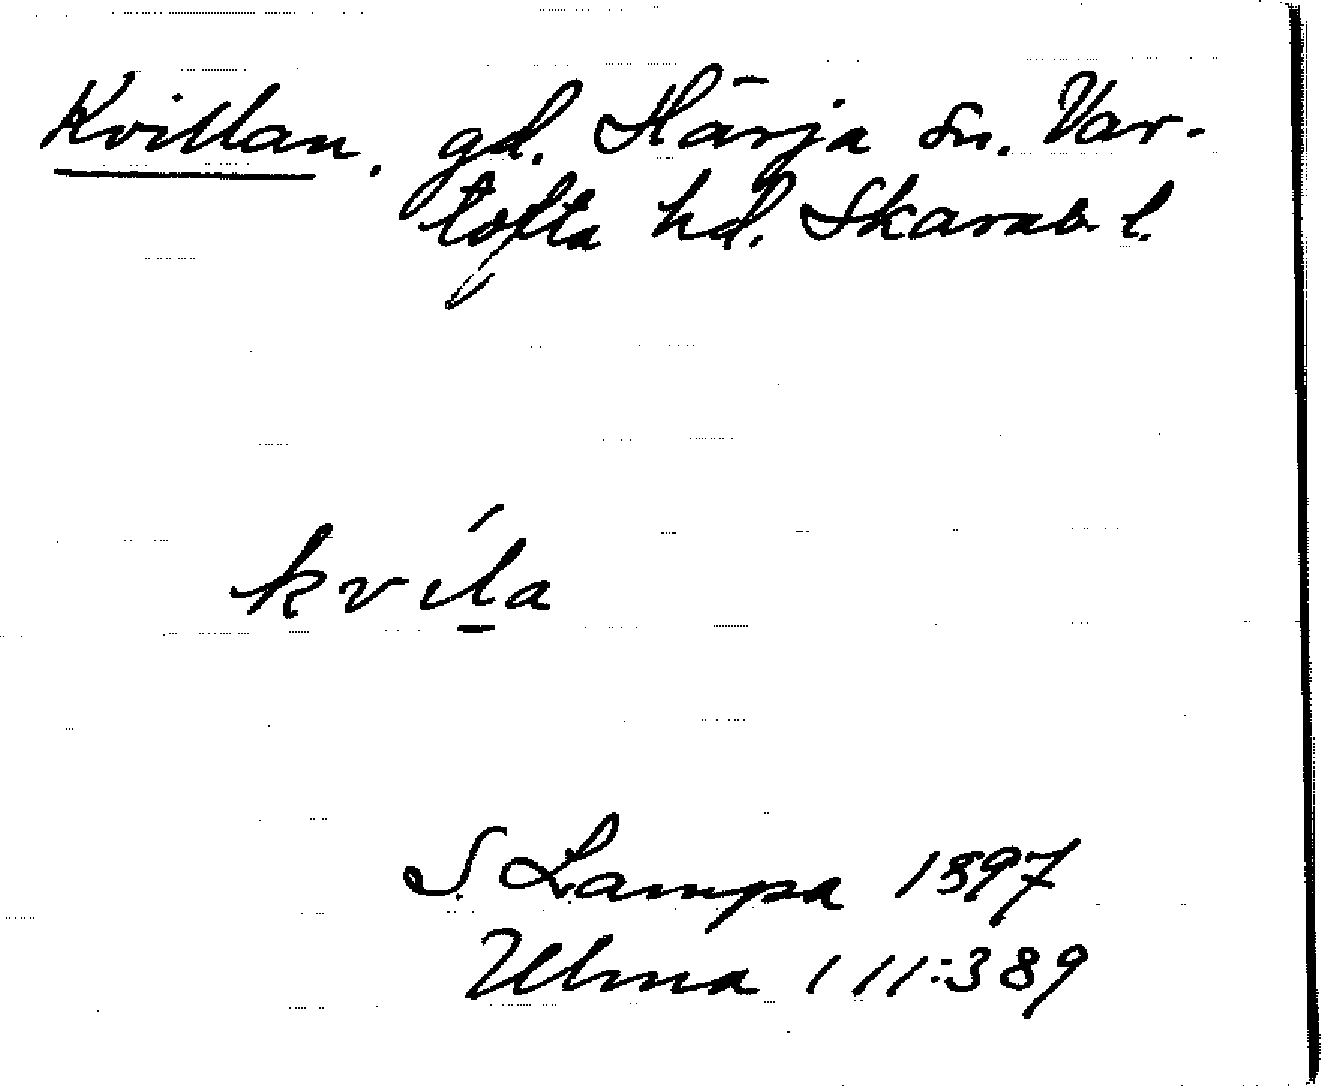 Kvillan, gd. Härja sn. Var-
tofta hd. Skarab. l.
kvíla
S. Lampa 1897
Ulma 111:389